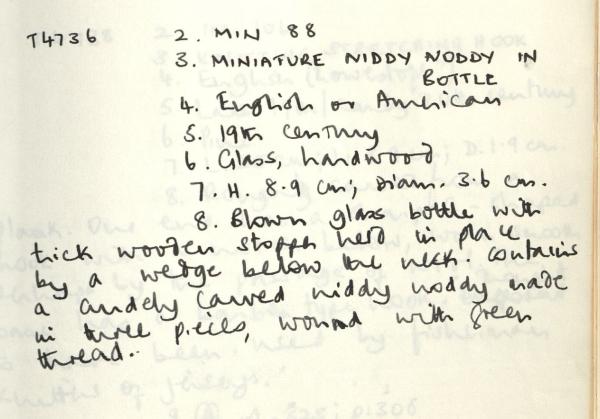 T4736 2. MIN 88
3. MINIATURE NIDDY NODDY IN
BOTTLE
4. English or American
5. 19th century
6. Glass, hardwood
7. H. 8.9 cm; Diam. 3.6 cm.
8. Blown glass bottle with
trick wooden stopper held in place
by a wedge below the neck. Contains
a crudely carved niddy noddy made
in three pieces, wound with green
thread.